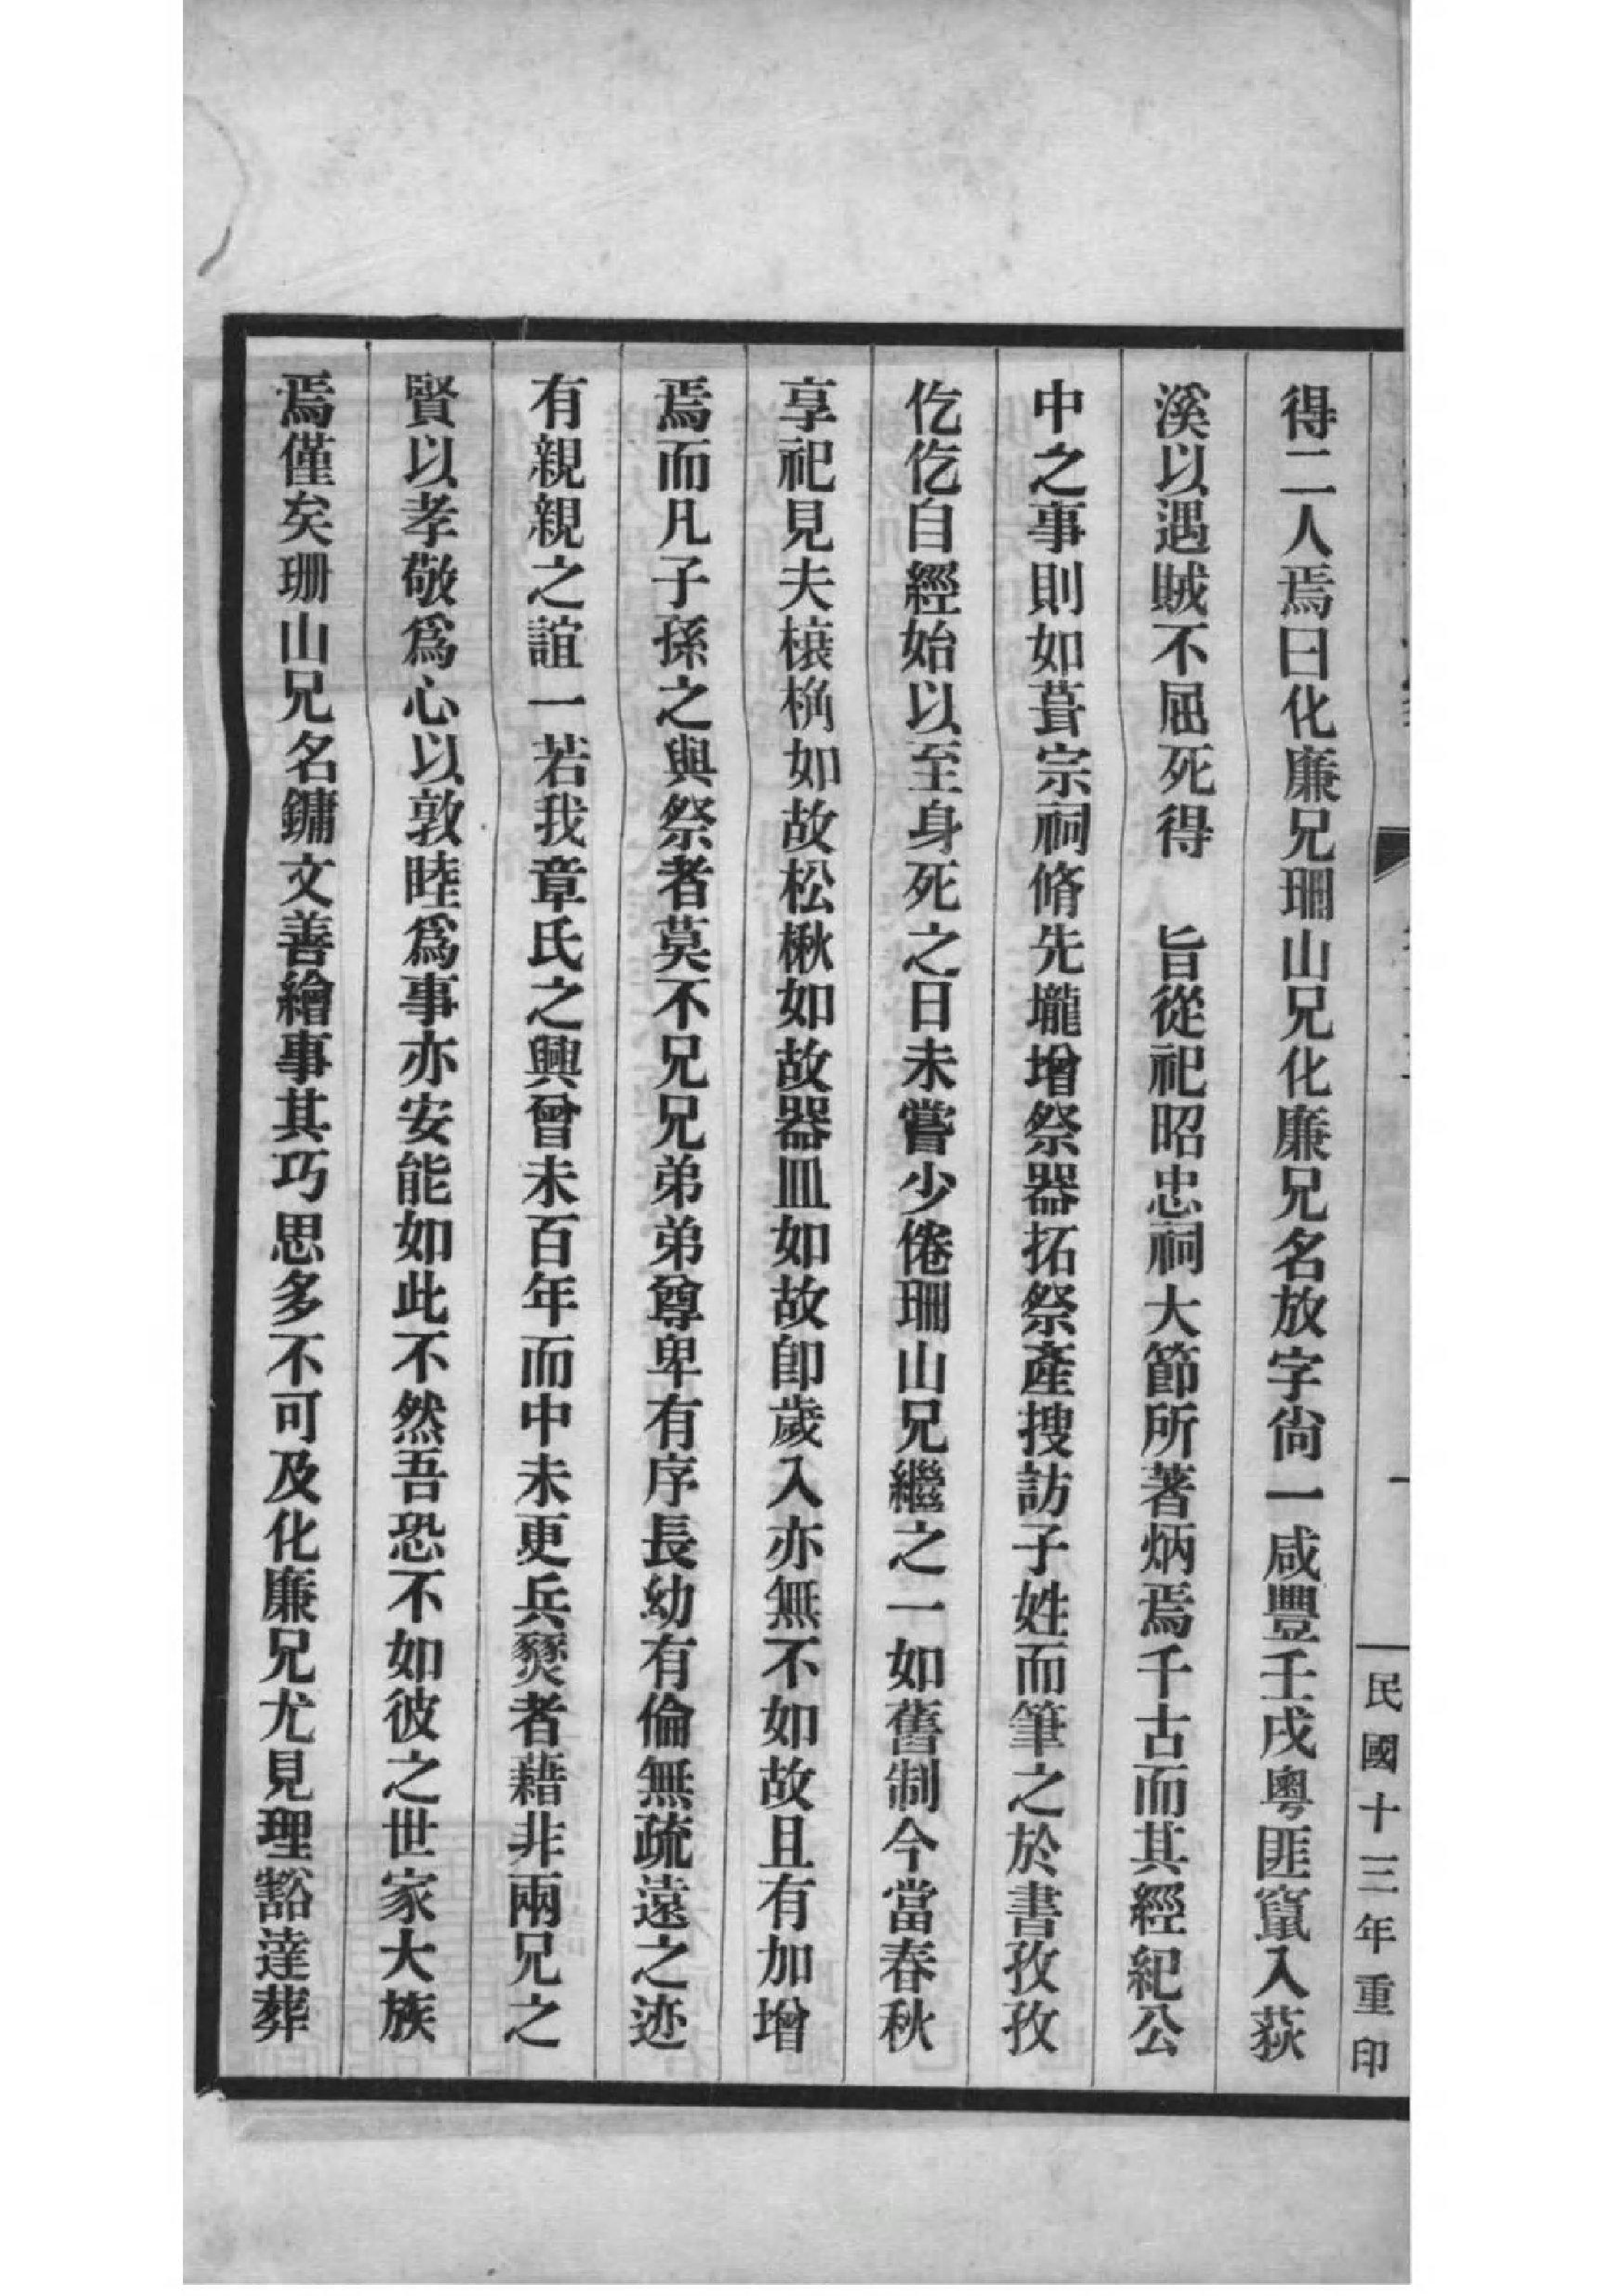 民國十三年重印
得二人焉曰化廉兄珊山兄化廉兄名放字尙一咸豐壬戌粵匪竄入荻
溪以遇賊不屈死得　旨從祀昭忠祠大節所著炳焉千古而其經紀公
中之事則如葺宗祠脩先壠增祭器拓祭產搜訪子姓而筆之於書孜孜
仡仡自經始以至身死之日未嘗少倦珊山兄繼之一如舊制今當春秋
享祀見夫榱桷如故松楸如故器皿如故卽歲入亦無不如故且有加增
焉而凡子孫之與祭者莫不兄兄弟弟尊卑有序長幼有倫無疏遠之迹
有親親之誼一若我章氏之興曾未百年而中未更兵燹者藉非兩兄之
賢以孝敬爲心以敦睦爲事亦安能如此不然吾恐不如彼之世家大族
焉僅矣珊山兄名鏞文善繪事其巧思多不可及化廉兄尤見理豁達葬